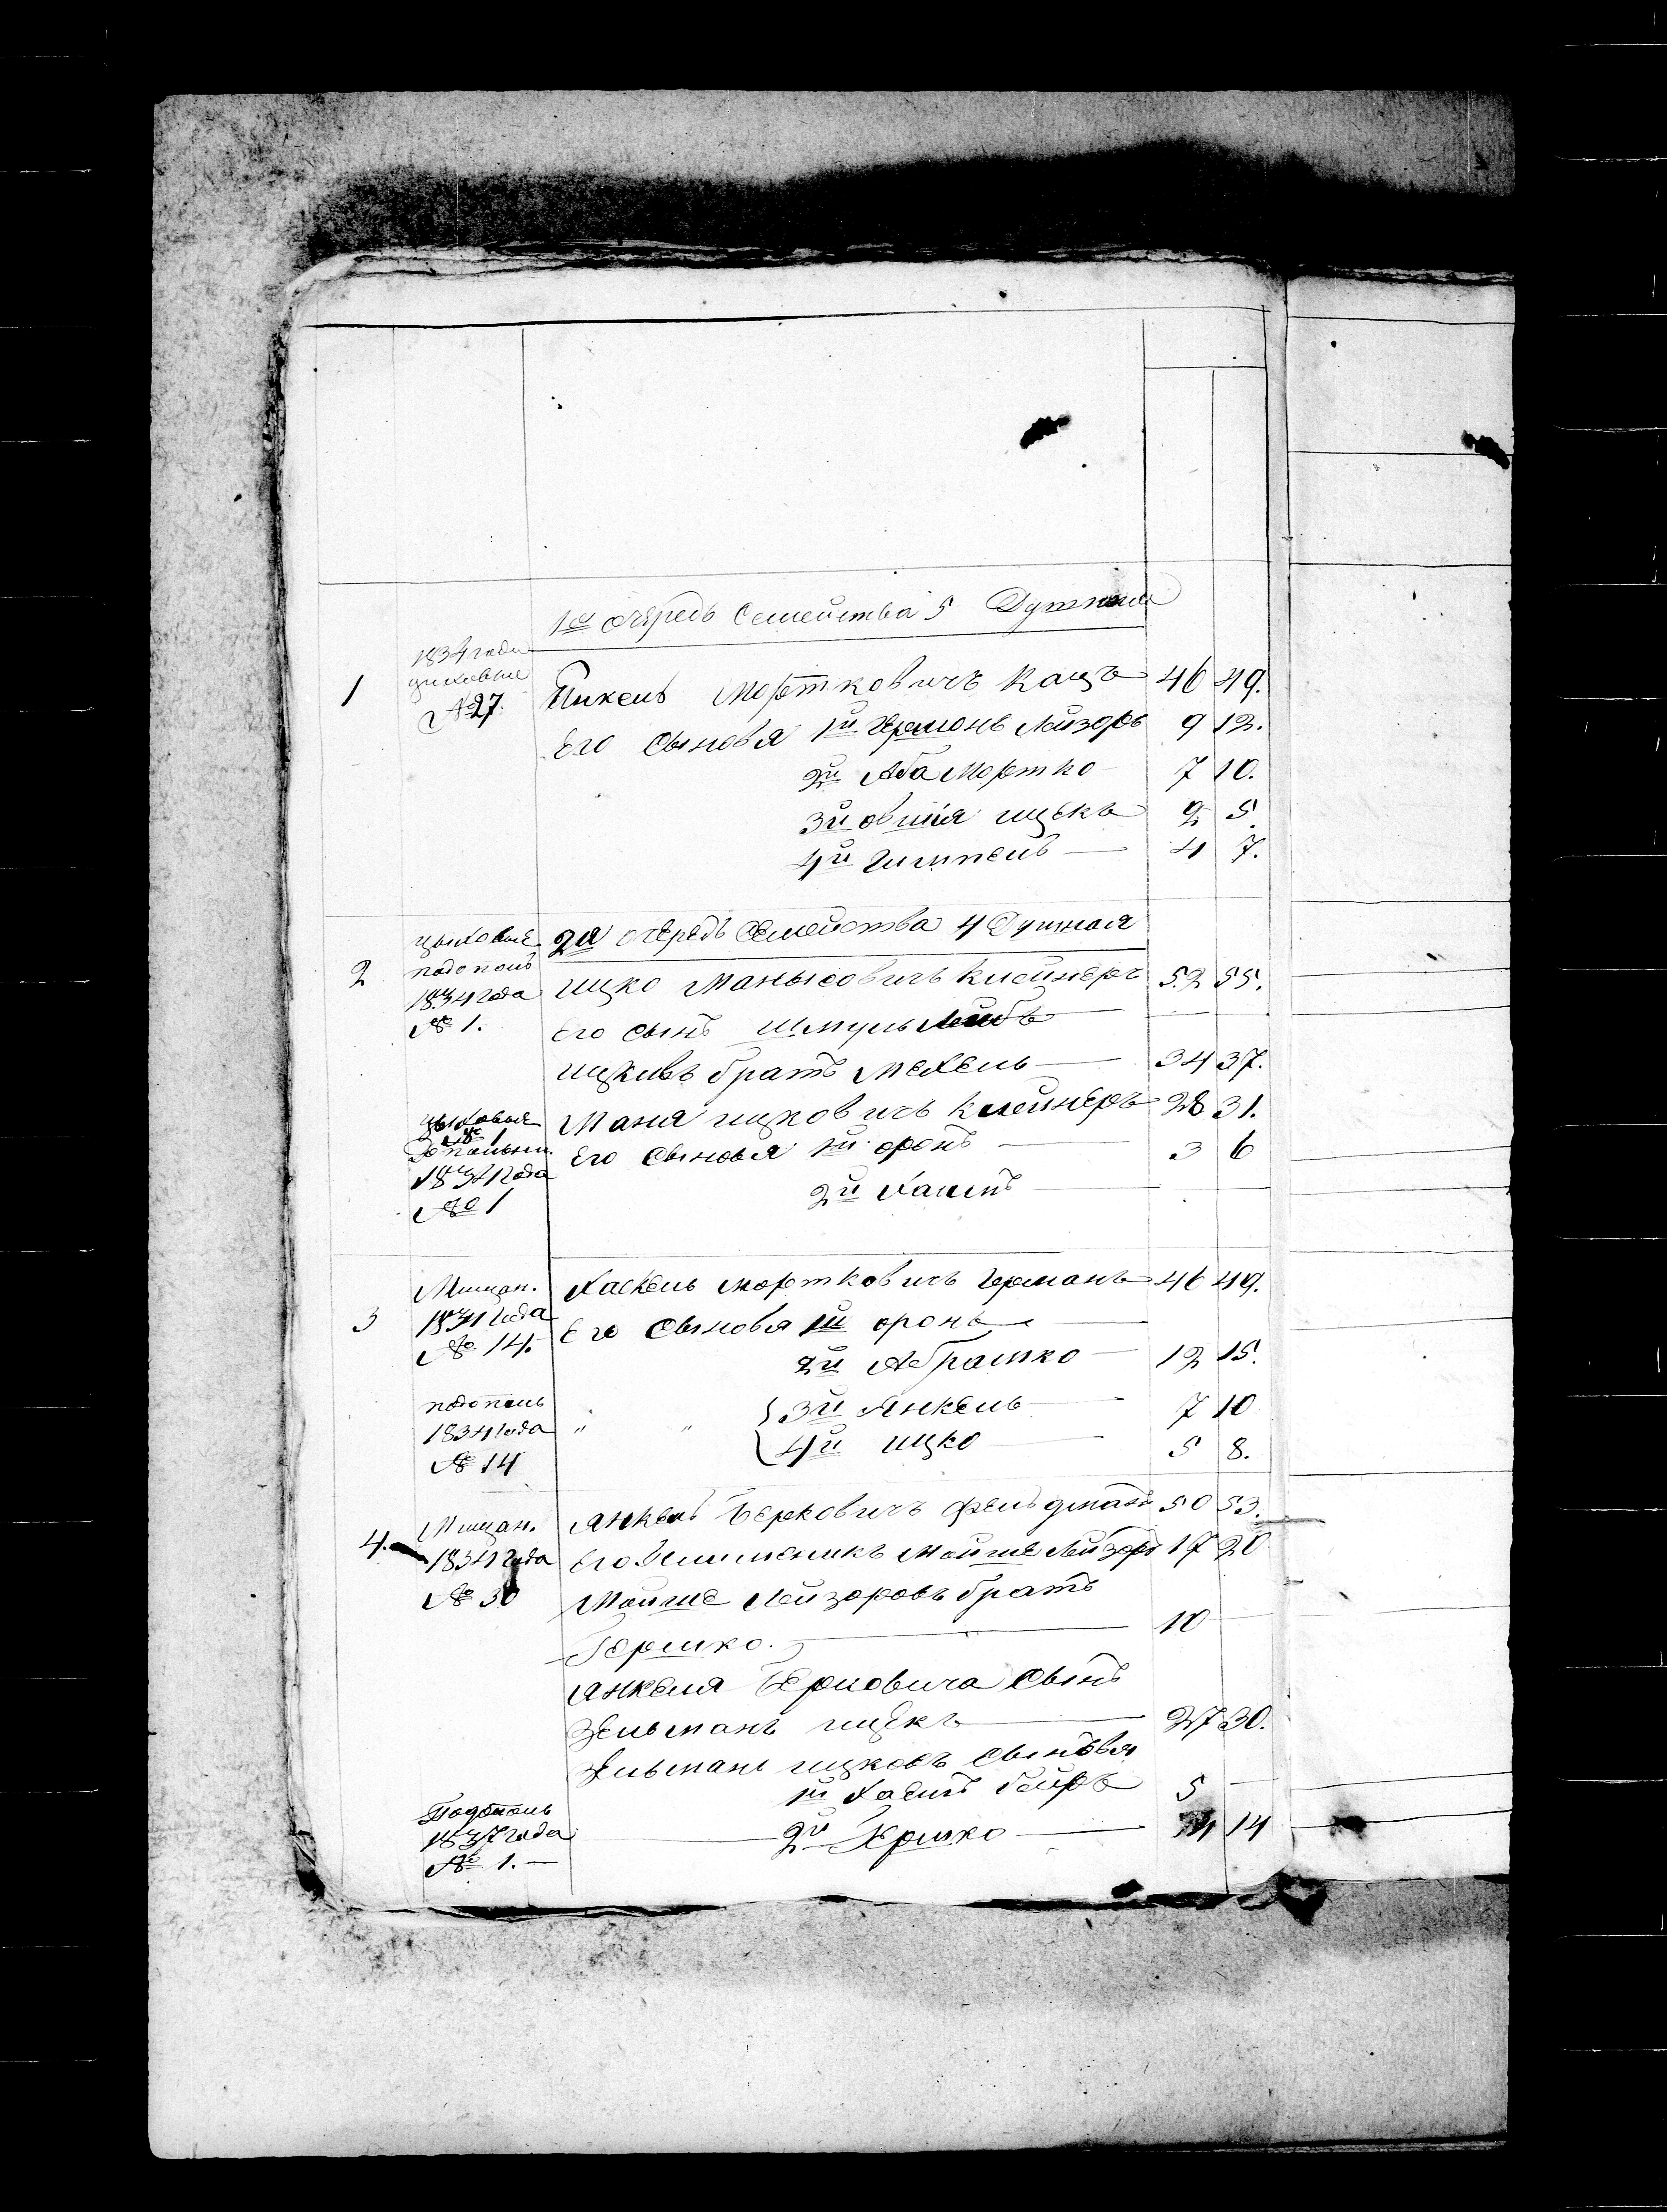 1я очередь Семейства 5 Душная
1
1834 года
цеховые
№ 27
Пинкель Мортковичъ Кацъ 46 49.
Его Сыновья 1й Гермонъ Лейзоръ 9 12.
2й Аба Мортко 7 10.
3й овшія ицекъ 2 5.
4й Гимпель 4 7.
2я очередь Семейства 4 Душная
2
цыховые
подополъ
1834 года
№ 1.
ицко Манысовичъ Клейнеръ 52 55.
Его сынъ Шмуль Лейбъ
ицкивъ братъ Мехель 34 37.
цыховые
№ 1
дополнит.
1834 года
№ 1
Маня ицковичъ Клейнеръ 28 31.
Его Сыновья 1й оронъ 3 6
2й Хаимъ
3
Мищан.
1834 года
№ 14.
Хаскель мортковичъ Германъ 46 49.
Его Сыновья 1й оронъ
2й Абрамко 12 15.
подополъ
1834 года
№ 14
" " 3й Янкель 7 10
4й ицко 5 8.
4.
Мищан.
1834 года
№ 30
Янкель Берковичъ Фельдманъ 50 53.
Его Племеникъ Мойше Лейзоръ 17 20
Мойше Лейзоровъ братъ
Гершко. 10
Янкеля Берковича Сынъ
Зельманъ ицекъ 27 30.
Зельманъ ицковъ Сыновья
1й Хаимъ Бейръ 5
Подополъ
1837 года
№ 1.
2й Гершко 14